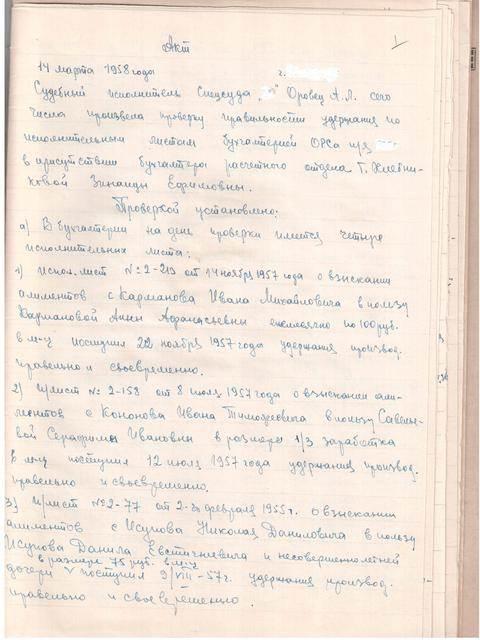 1
Акт
14 марта 1958 годы г.
Судебный исполнитель Спецсуда " " Оровец А.Л. сего
числа произвела проверку правильности удержания по
исполнительным листам бухгалтерией ОРСа п/я
в присутствии бухгалтера расчетного отдела т. Хлебни-
ковой Зинаиды Ефимовны.
Проверкой установлено:
а) В бухгалтерии на день проверки имеется четыре
исполнительных листа:
1) Испол. лист № 2-219 от 14 ноября 1957 года о взыскании
алиментов с Карманова Ивана Михайловича в пользу
Кармановой Анны Афанасьевны ежемесячно по 100 руб.
в м-ц поступил 22 ноября 1957 года удержания производ.
правельно и своевременно.
2) И/лист № 2-158 от 8 июля 1957 года о взыскании али-
ментов с Кононова Ивана Тимофеевича в пользу Савелье-
вой Серафимы Ивановны в размере 1/3 заработка
в м-ц поступил 12 июля 1957 года удержания производ.
правельно и своевременно.
3) И/лист № 2-77 от 2-го февраля 1955 г. о взыскании
алиментов с Исупова Николая Даниловича в пользу
Исупова Данила и несовершеннолетней
в размере 75 руб. в м-ц
дочери V поступил 9/VIII-57 г. удержания производ.
правельно и своевременно.